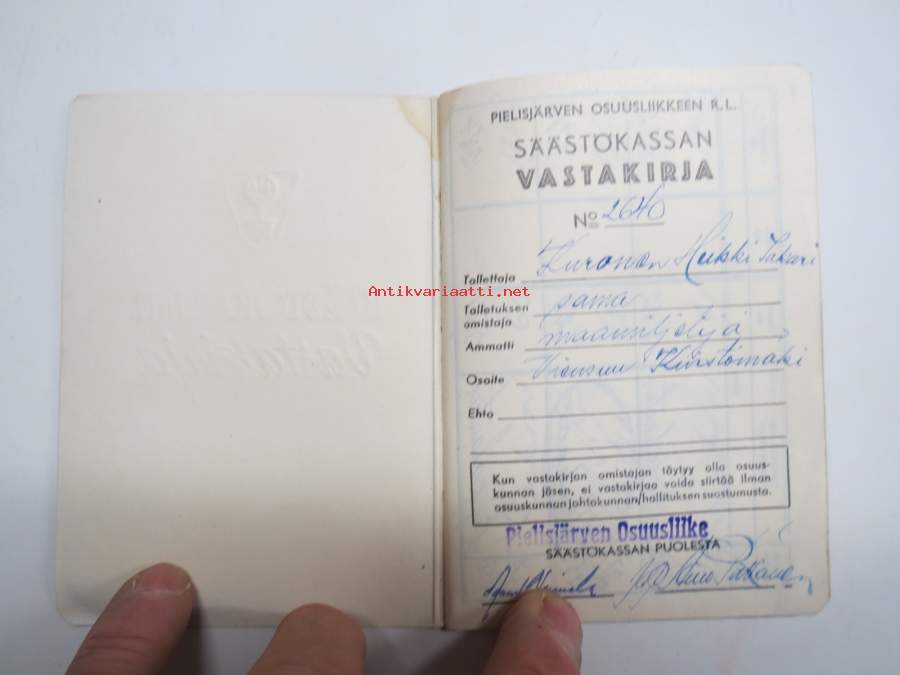 PIELISJÄRVEN OSUUSLIIKKEEN R.L.
SÄÄSTÖKASSAN
VASTAKIRJA
Nº 2640
Tallettaja Kuronen Heikki Sakari
Antikvariaatti.net
Talletuksen omistaja sama
Ammatti maanviljelijä
Osoite Viensuu Kiristömäki
Ehto
Kun vastakirjan omistajan täytyy olla osuus-
kunnan jäsen, ei vastakirjaa voida siirtää ilman
osuuskunnan johtokunnan/hallituksen suostumusta.
Pielisjärven Osuusliike
SÄÄSTÖKASSAN PUOLESTA